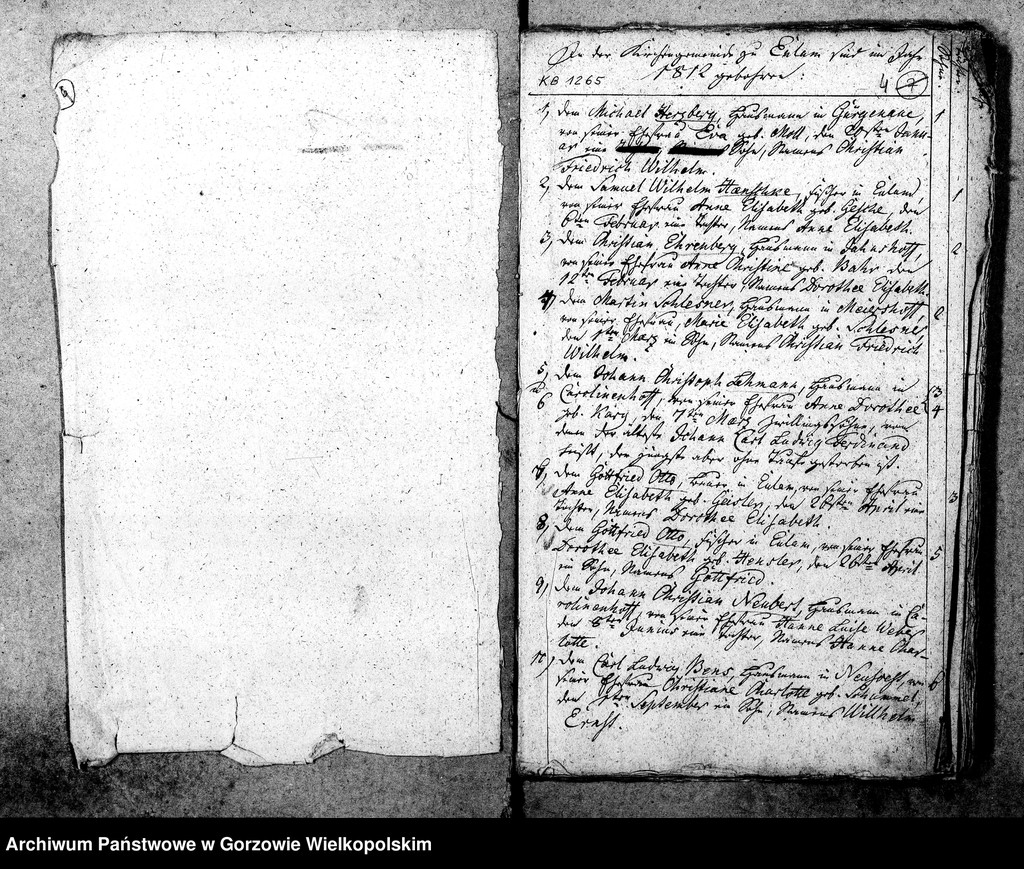 9
In der Kirchengemeinde zu Eulam sind im Jahr
1812 gebohren:
KB 1265
4 7
1, dem Michael Herzberg, Hausmann in Gürgenaue, 1
von seiner Ehefrau Eva geb. Moll, den Janu-
ar eine Sohn, Namens Christian
Friedrich Wilhelm.
2, dem Samuel Wilhelm Haenschke, Fischer in Eulam, 1
von seiner Ehefrau Anne Elisabeth geb. GeschE, den
6ten Februar eine Tochter, Namens Anne Elisabeth.
3, dem Christian Ehrenberg, Hausmann in Jahnshoff, 2
von seiner Ehefrau Anne Christine geb. Bahr den
12ten Februar eine Tochter, Namens Dorothee Elisabeth
4, dem Martin Schlesner, Hausmann in Meiershoff, 2
von seiner Ehefrau, Marie Elisabeth geb. Schlesner
den März ein Sohn, Namens Christian Friedrich
Wilhelm.
5, dem Johann Christoph Lehmann, Hausmann in 3
u Carolinenhoff, von seiner Ehefrau Anne Dorothee 4
6 geb. Karg, den 7ten März Zwillingssöhne, von
denen der älteste Johann Carl Ludwig Ferdinand
heißt, der jüngste aber ohne Taufe gestorben ist.
7, dem Gottfried Otto, Bauer in Eulam, von seiner Ehefrau
Anne Elisabeth geb. Geisler, den 26sten April eine 3
Tochter, Namens Dorothee Elisabeth.
8, dem Gottfried Otto, Fischer in Eulam, von seiner Ehefrau 5
Dorothee Elisabeth geb. Hensler, den 26sten April
ein Sohn, Namens Gottfried.
9, dem Johann Christian Neubert, Hausmann in Ca-
rolinenhoff, von seiner Ehefrau Hanne Luise Weber
den 8ten Junius eine Tochter, Namens Hanne Char-
lotte.
10, dem Carl Ludwig Bens, Hausmann in Neusorest, von 6
seiner Ehefrau Christianne Charlotte geb. Schimmel,
den September ein Sohn, Namens Willhelm
Ernst.
Archiwum Państwowe w Gorzowie Wielkopolskim